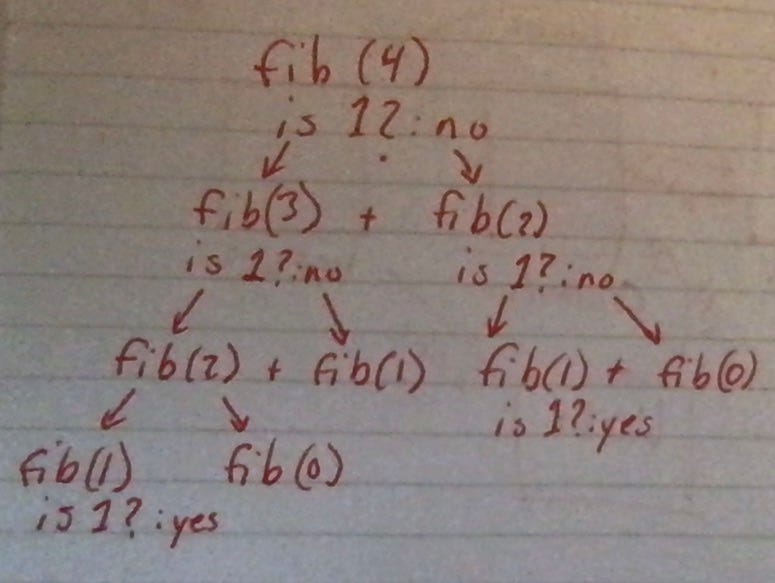 fib(4)
is 1?:no
fib(3) + fib(2)
is 1?:no is 1?:no
fib(2) + fib(1) fib(1) + fib(0)
is 1?:yes
fib(1) fib(0)
is 1?:yes